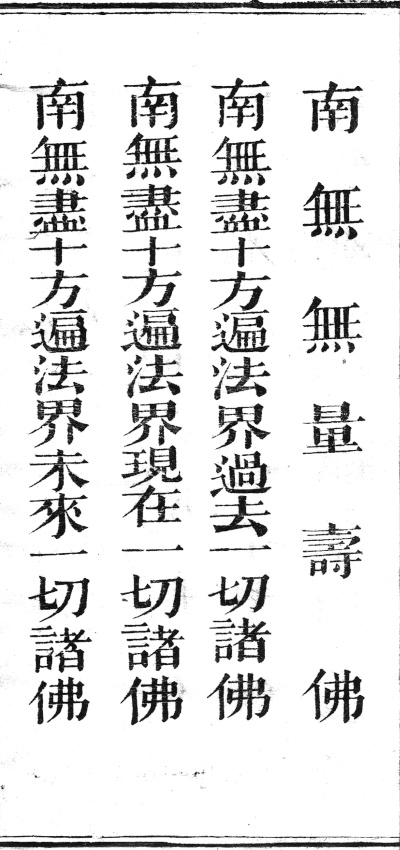 南無無量壽佛
南無盡十方遍法界過去一切諸佛
南無盡十方遍法界現在一切諸佛
南無盡十方遍法界未來一切諸佛